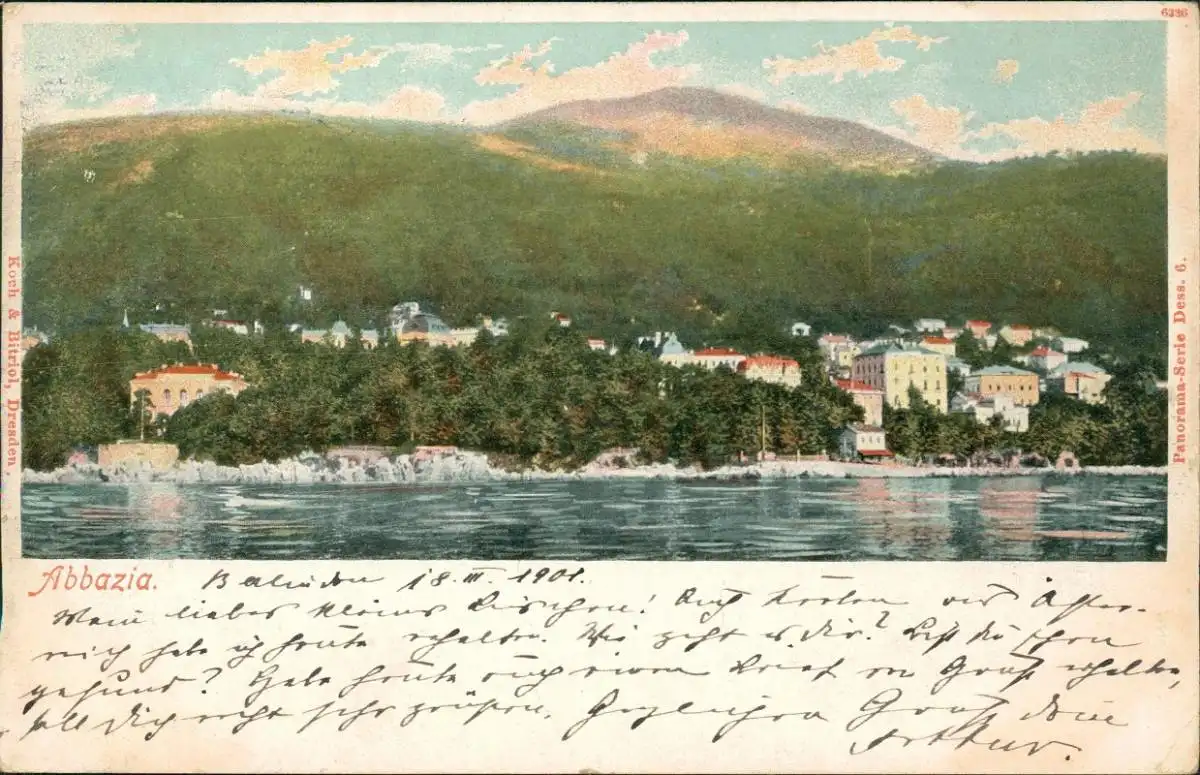 6336
Koch & Bitriol, Dresden.
Panorama-Serie Dess. 6.
Abbazia. 18. III. 1901.
Mein liebes kleines Lieschen! Auf Karten
habe ich heute erhalten. Wie geht es Dir? Bist Du schon
gesund? Habe heute auch einen Brief erhalten,
soll Dich recht sehr grüßen. Herzlichen Gruß Dein
Arthur.